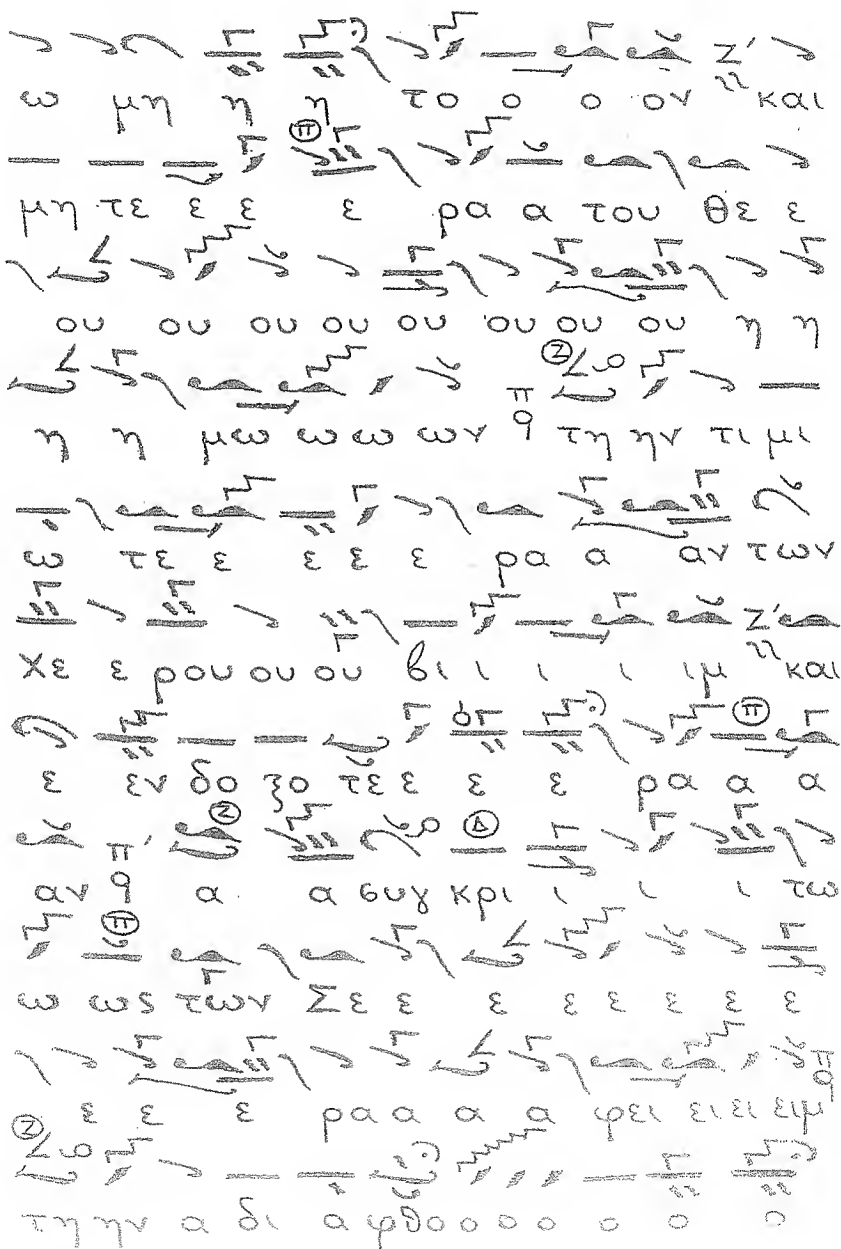 ω μη η η το ο ο ον Ζ΄ και
Π
μη τε ε ε ε ρα α του θε ε
ου ου ου ου ου ου ου ου η η
Ν
η η μω ω ω ων π q τη ην τι μι
ω τε ε ε ε ε ρα α αν των
Ζ΄
χε ε ρου ου ου βι ι ι ι ιμ και
Π
ε εν δο ξο τε ε ε ε ρα α α
Ν Δ
αν π΄ q α α συγ κρι ι ι ι τω
Π
ω ως των Σε ε ε ε ε ε ε ε
π q
ε ε ε ρα α α α φει ει ει ειμ
Ν
τη ην α δι α φθο ο ο ο ο ο ο